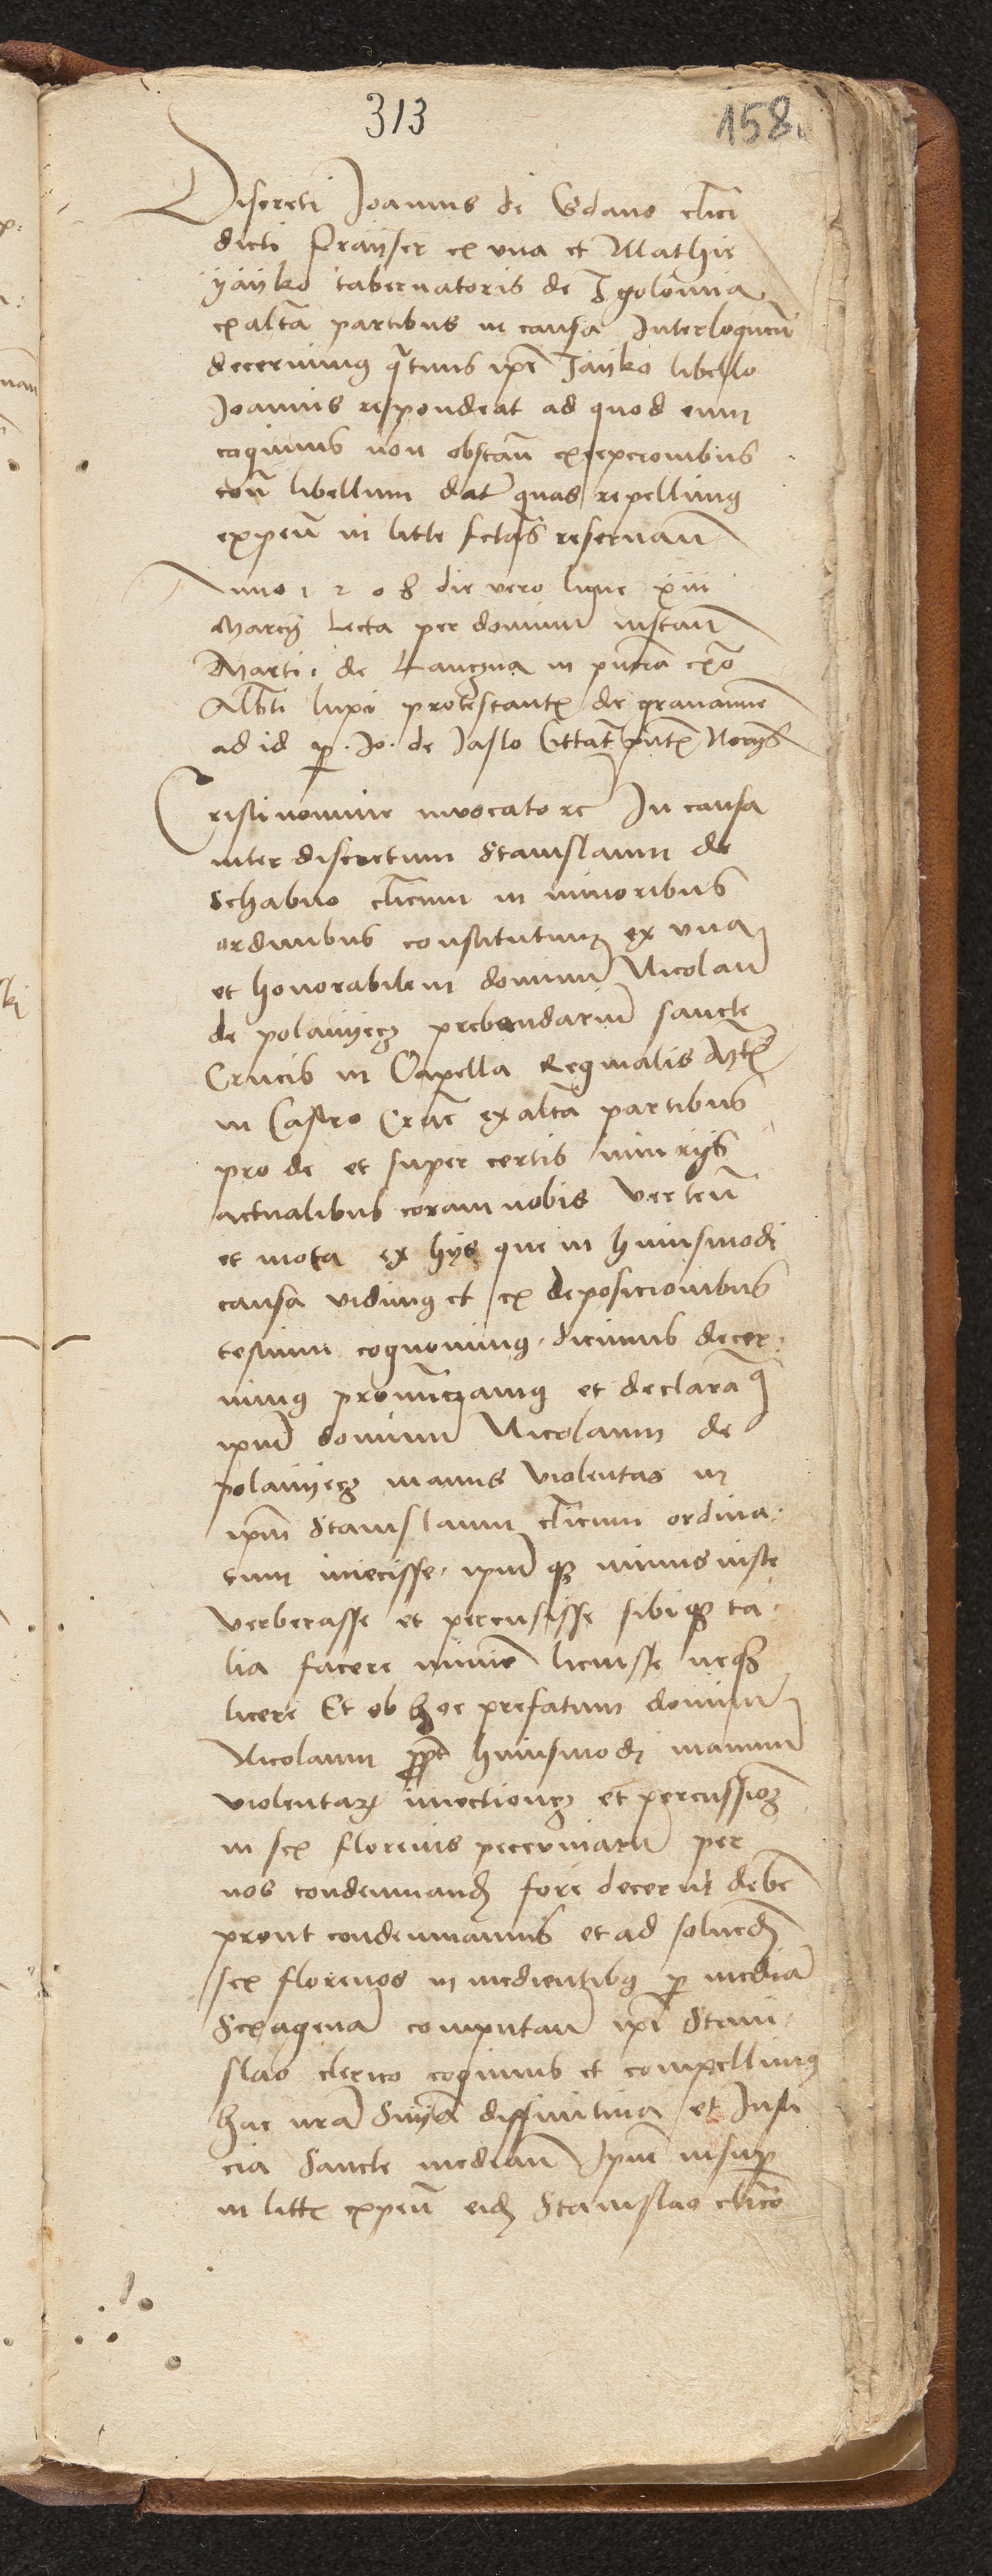 313
158.
Discreti Joannis de Gdano clici
dicti Krayser ex vna et Mathie
yayko tabernatoris de Igolomia
ex alta partibus in causa Interloqucũ
decernimus qtinus ipe Jayko libello
Joannis respondeat ad quod eum
cogimus non obstan̄ excepcionibus
con̄ libellum dat quas repellimus
expen̄ in litte fctas reseruan̄
Anno 1508 die vero lune xiii
Marcij Lecta per dominũ instan̄
Marti. de in pñcia exõ
Alb̃ti lupi protestant̄ de grauamine
ad id p. Jo. de Jaslo pñt̄ Norijs
Cristi nomine inuocato etc In causa
inter discretum Stanislaum de
Schabno clicum in minoribus
ordinibus constitutum ex vna
et honorabilem dominũ Nicolaũ
de polanyecz prebendariũ sancte
Crucis in Capella Reginalis Mt̃
in Castro Crac̃ ex alta partibus
pro de et super certis iniurijs
actualibus coram nobis verten̄
et mota ex hijs que in huiusmodi
causa vidimus et ex deposicionibus
testium cognouimus. dicimus decer-
nimus pronũcciamus et declaramus
ipm̃ dominũ Nicolaum de
polanyecz manus violentas in
ipm̃ Stanislaum clicum ordina-
tum iniecisse. ipm̃ qz minus iuste
verberasse et percussisse sibiqz ta-
lia facere minie licuisse neqz
licere Et ob hoc prefatum dominũ
Nicolaum ppt huiusmodi manuum
violentarum iniectionem et percussionem
in sex florenis peccuniarũ per
nos condemnand̄ fore decernit debē
prout condemnamus et ad soluend̄
sex florenos in medientibus p mediã
Sexagenã computan̄ ipi Stani-
slao clerico cogimus et compellimus
hac nr̃a Sñya diffinitiua et Justi
cia Sancte median̄ Ipm̃ insup
in litte expen̄ eid̄ Stanislao clico